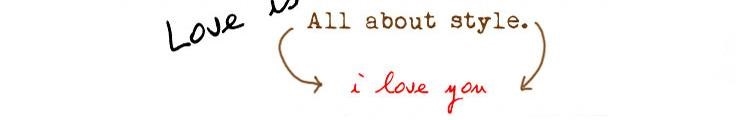 Love is
All about style.
i love you